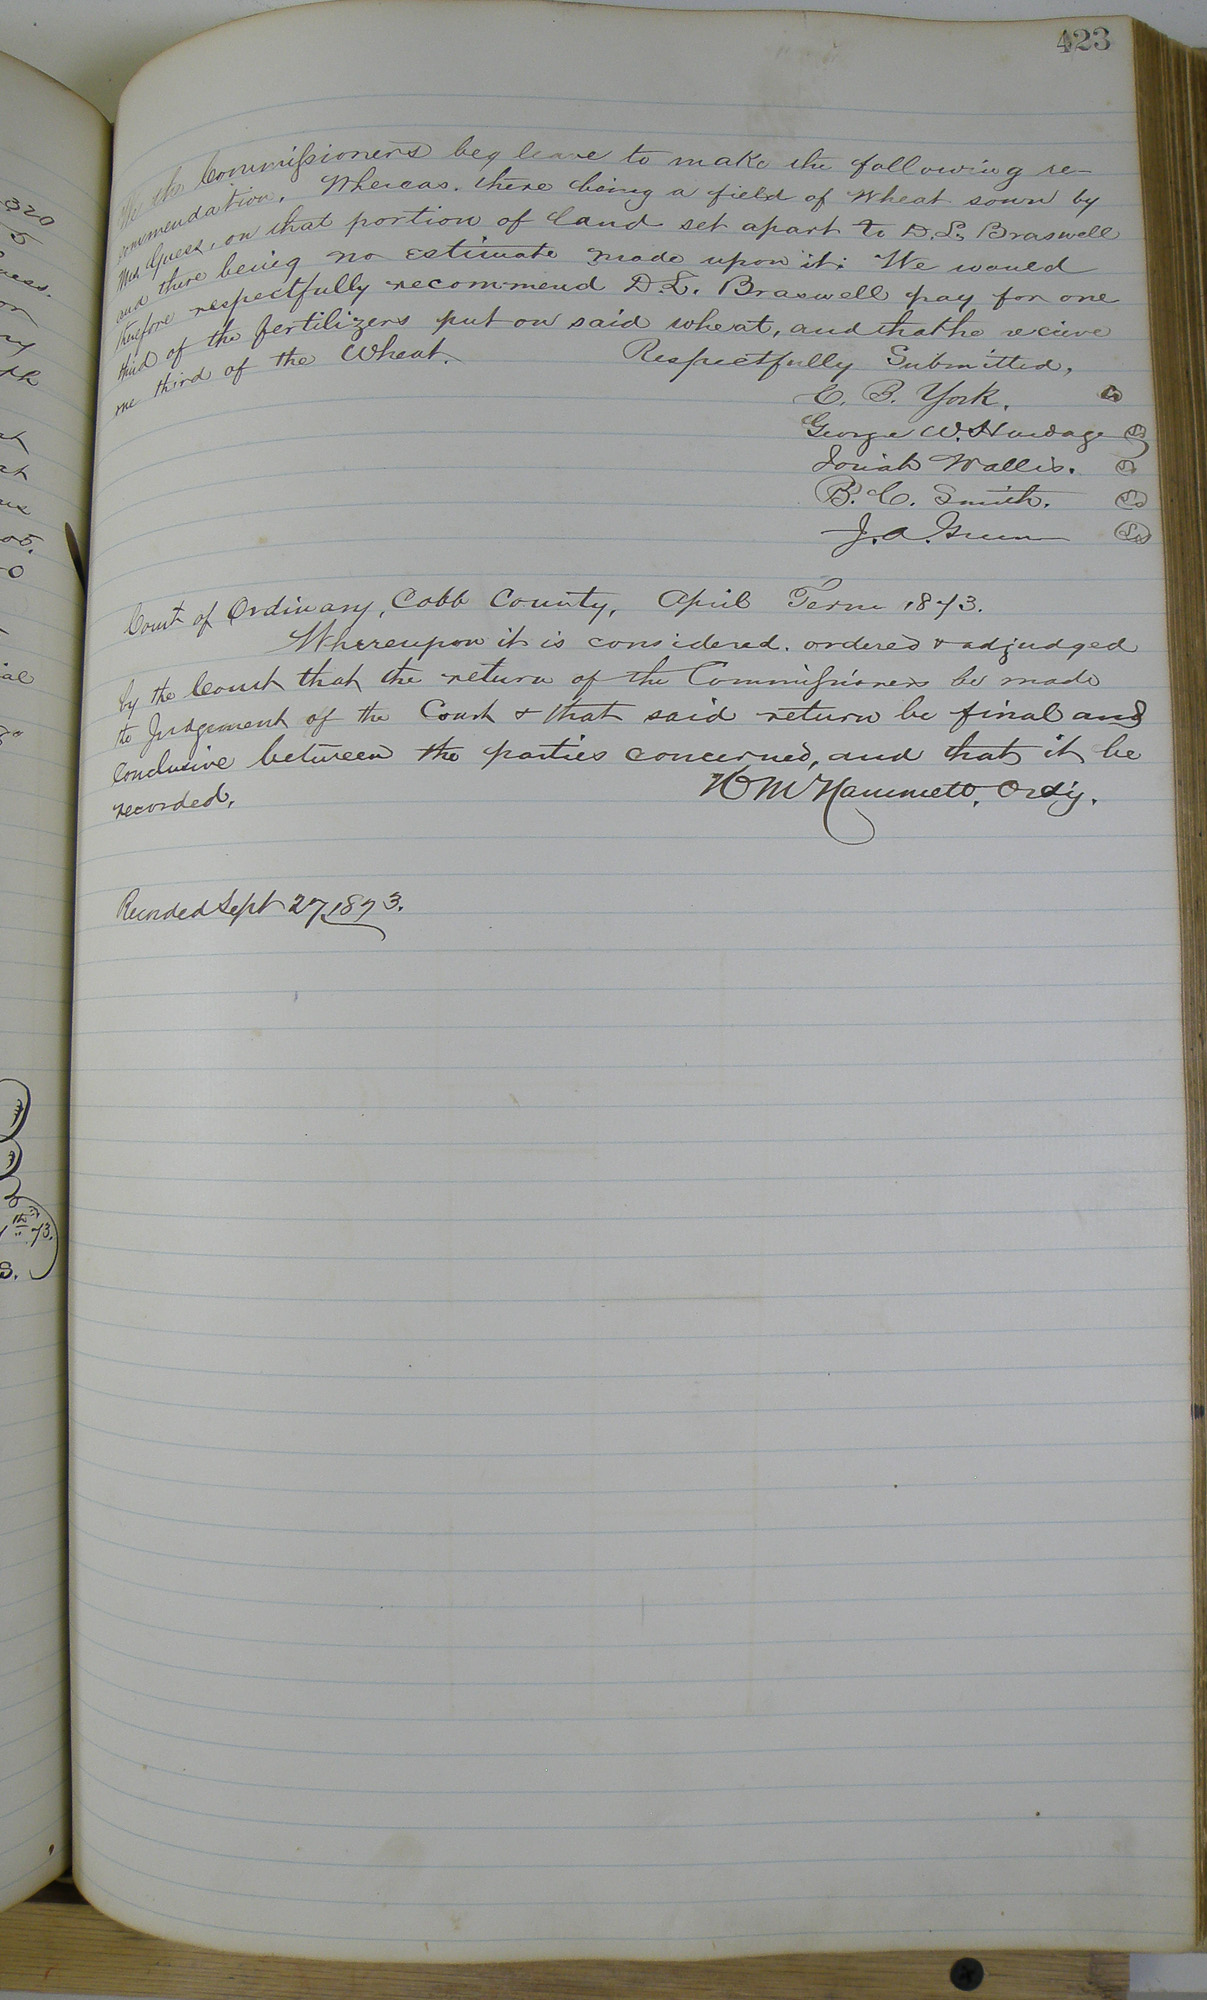 423
We the Commissioners beg leave to make the following re-
commendation. Whereas. there being a field of Wheat sown by
Mrs Guess, on that portion of land set apart to D. L. Braswell
and there being no estimate made upon it: We would
therefore respectfully recommend D. L. Braswell pay for one
third of the fertilizers put on said wheat, and that he recieve
one third of the Wheat.
Respectfully Submitted,
C. B. York.
George W.
Josiah Wallis.
B. C. Smith.
J. A. Green
Court of Ordinary, Cobb County, April Term 1873.
Whereupon it is considered. ordered & adjudged
by the Court that the return of the Commissioners be made
the Judgement of the Court & that said return be final and
Conclusive between the parties concerned, and that it be
recorded.
H M Hammett, Ordy.
Recorded Sept 27, 1873.
320
5